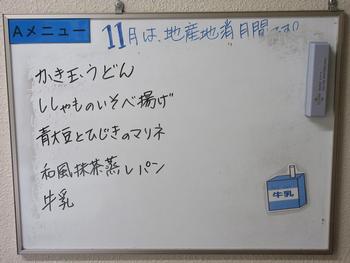 Aメニュー
11月は、地産地消月間です!
かき玉うどん
ししゃものいそべ揚げ
青大豆とひじきのマリネ
和風抹茶蒸しパン
牛乳
牛乳